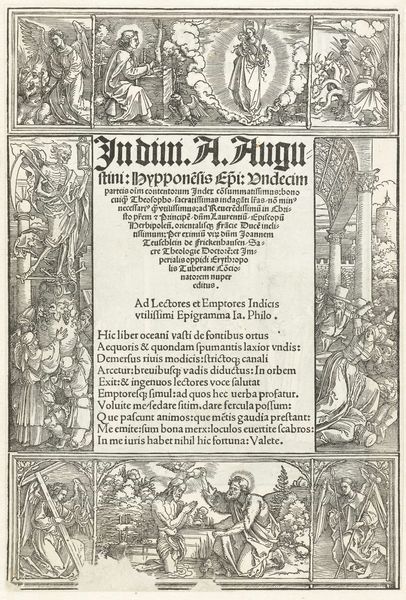 In diui. A. Augu-
stini: Hypponēsis Epi: Undecim
parteis oīm contentorum Index cōsummatissimus: bono
cuiqȝ Theosopho
necessariꝰ
sto prēm ⁊ Principē dñm Laurentiū Episcopū
Herbipoleñ. orientalisqȝ Frācie Ducē incli-
tissimum: Per eximiū virū dñm Joannem
Teuschlein de Frickenhausen, Sa-
cre Theologie Doctorē: et Im-
perialis oppidi Erythropo
lis Tuberane Cōcio-
natorem nuper
editus.
Ad Lectores et Emptores Indicis
vtilissimi Epigramma Ia. Philo.
Hic liber oceani vasti de fontibus ortus
Aequoris & quondam spumantis laxior vndis:
Demersus riuis modicis: strictoqȝ canali
Arcetur: breuibusqȝ vadis diductus: In orbem
Exit: & ingenuos lectores voce salutat
Emptoresqȝ simul: ad quos hec verba profatur.
Voluite me/sedare sitim. dare fercula possum:
Que pascunt animos: que mētis gaudia prestant:
Me emite: sum bona merx: loculos euertite scabros:
In me iuris habet nihil hic fortuna: Valete.